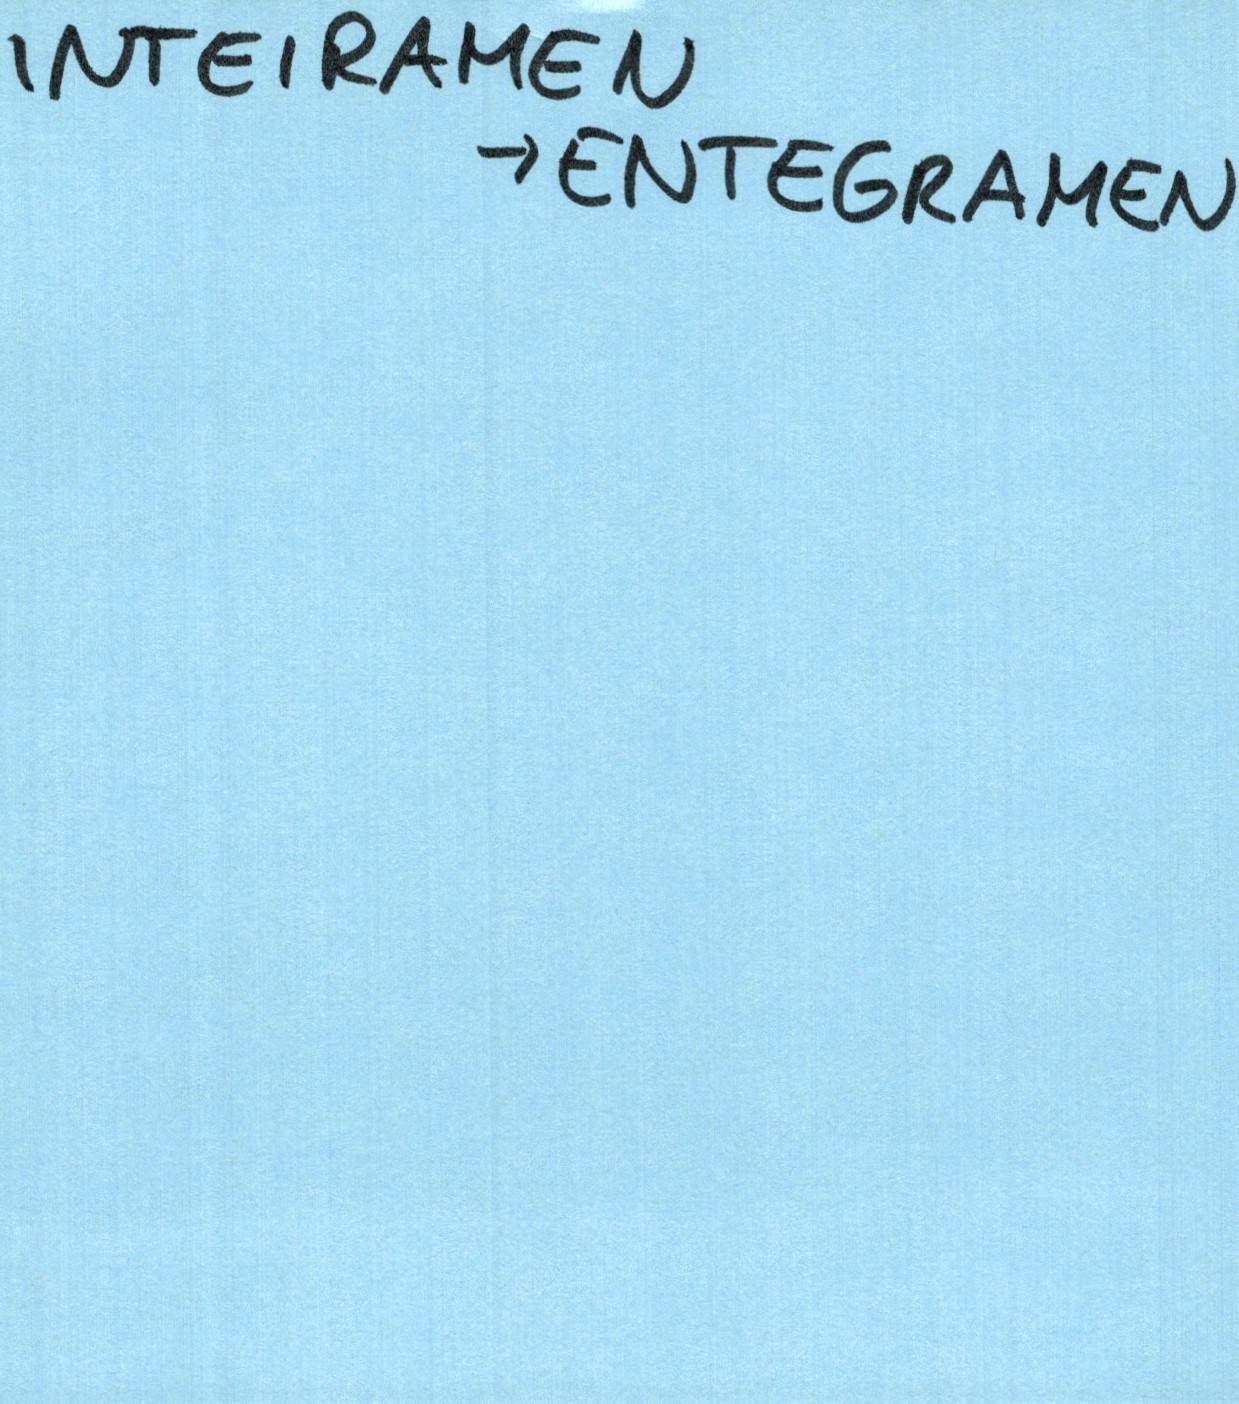 INTEIRAMEN
→ENTEGRAMEN